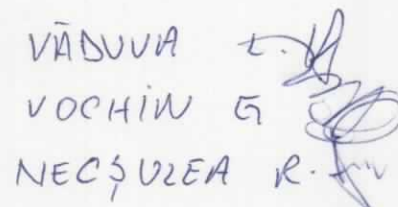 VĂDUVA E.
VOCHIN G
NECȘULEA R.